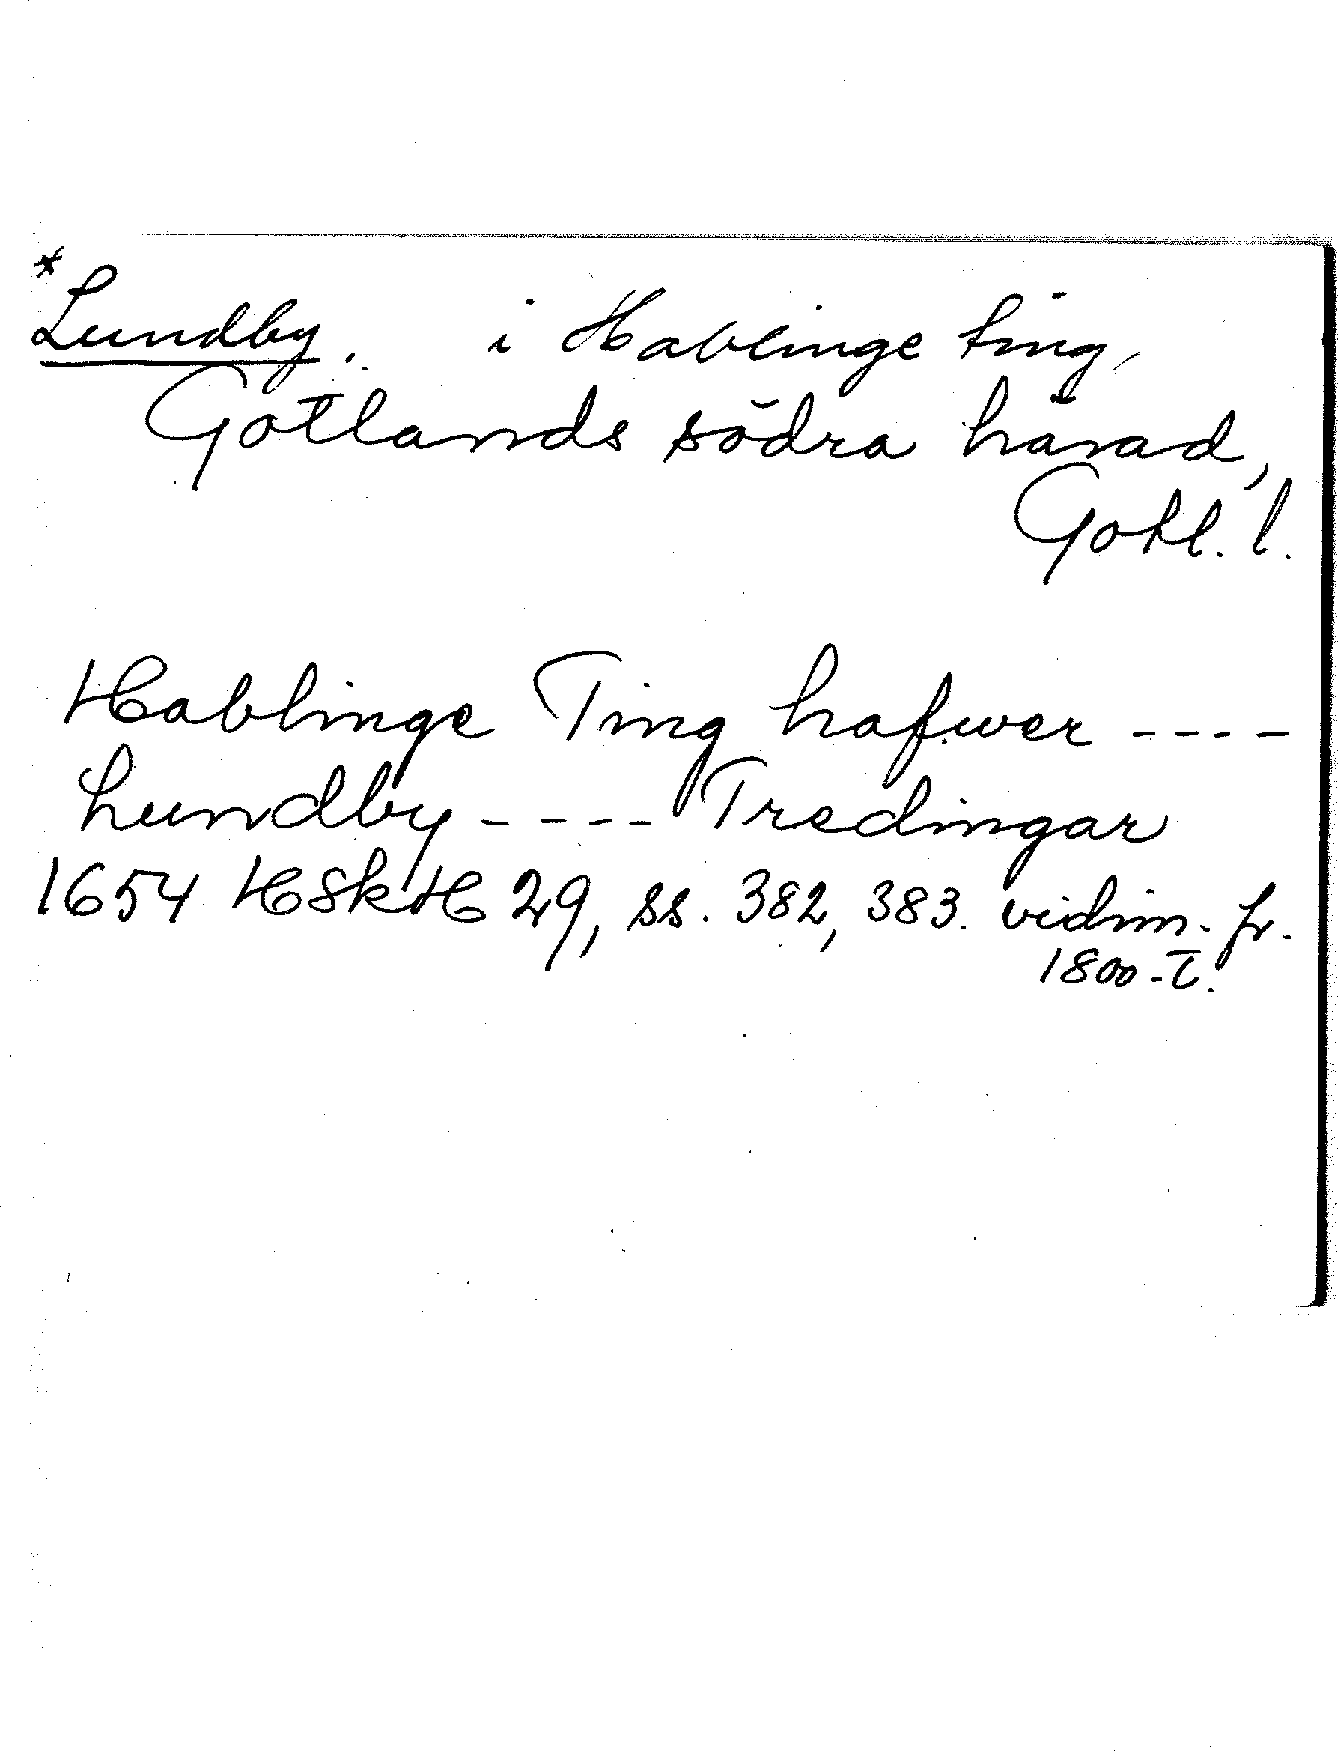 *
Lundby. i Hablinge ting,
Gotlands södra härad,
Gotl. l.
Hablinge Ting hafwer ----
Lundby ---- Tredingar
1654 HSkH 29, ss. 382, 383. vidim. fr.
1800-t.